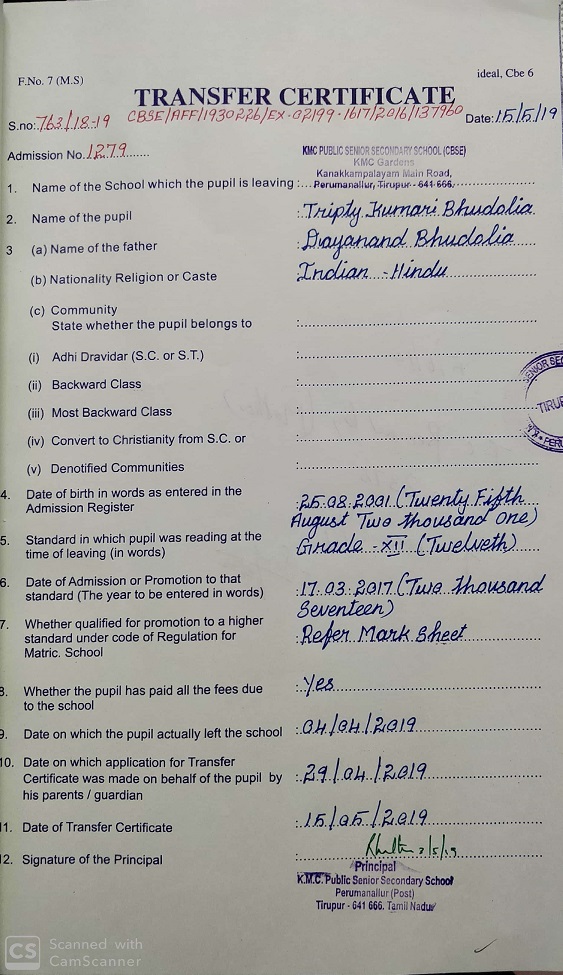 F.No. 7 (M.S)
ideal, Cbe 6
TRANSFER CERTIFICATE
S.no: 763/18-19 CBSE/AFF/1930226/EX-02199-1617/2016/137960 Date: 15/5/19
Admission No. 1279
KMC PUBLIC SENIOR SECONDARY SCHOOL (CBSE)
KMC Gardens
Kanakkampalayam Main Road,
1. Name of the School which the pupil is leaving : Perumanallur, Tirupur - 641 666.
2. Name of the pupil : Tripty Kumari Bhudolia
3 (a) Name of the father : Dayanand Bhudolia
(b) Nationality Religion or Caste Indian - Hindu
(c) Community
State whether the pupil belongs to :
(i) Adhi Dravidar (S.C. or S.T.) :
(ii) Backward Class :
(iii) Most Backward Class :
(iv) Convert to Christianity from S.C. or :
(v) Denotified Communities :
4. Date of birth in words as entered in the : 25.08.2001 (Twenty Fifth
Admission Register August Two thousand one)
5. Standard in which pupil was reading at the Grade - XII (Twelveth)
time of leaving (in words)
6. Date of Admission or Promotion to that : 17.03.2017 (Two thousand
standard (The year to be entered in words) Seventeen)
7. Whether qualified for promotion to a higher : Refer Mark Sheet
standard under code of Regulation for
Matric. School
8. Whether the pupil has paid all the fees due : Yes
to the school
9. Date on which the pupil actually left the school : 04/04/2019
10. Date on which application for Transfer : 29/04/2019
Certificate was made on behalf of the pupil by
his parents / guardian
11. Date of Transfer Certificate : 15/05/2019
12. Signature of the Principal :
Principal
K.M.C. Public Senior Secondary School
Perumanallur (Post)
Tirupur - 641 666. Tamil Nadu
CS Scanned with
CamScanner